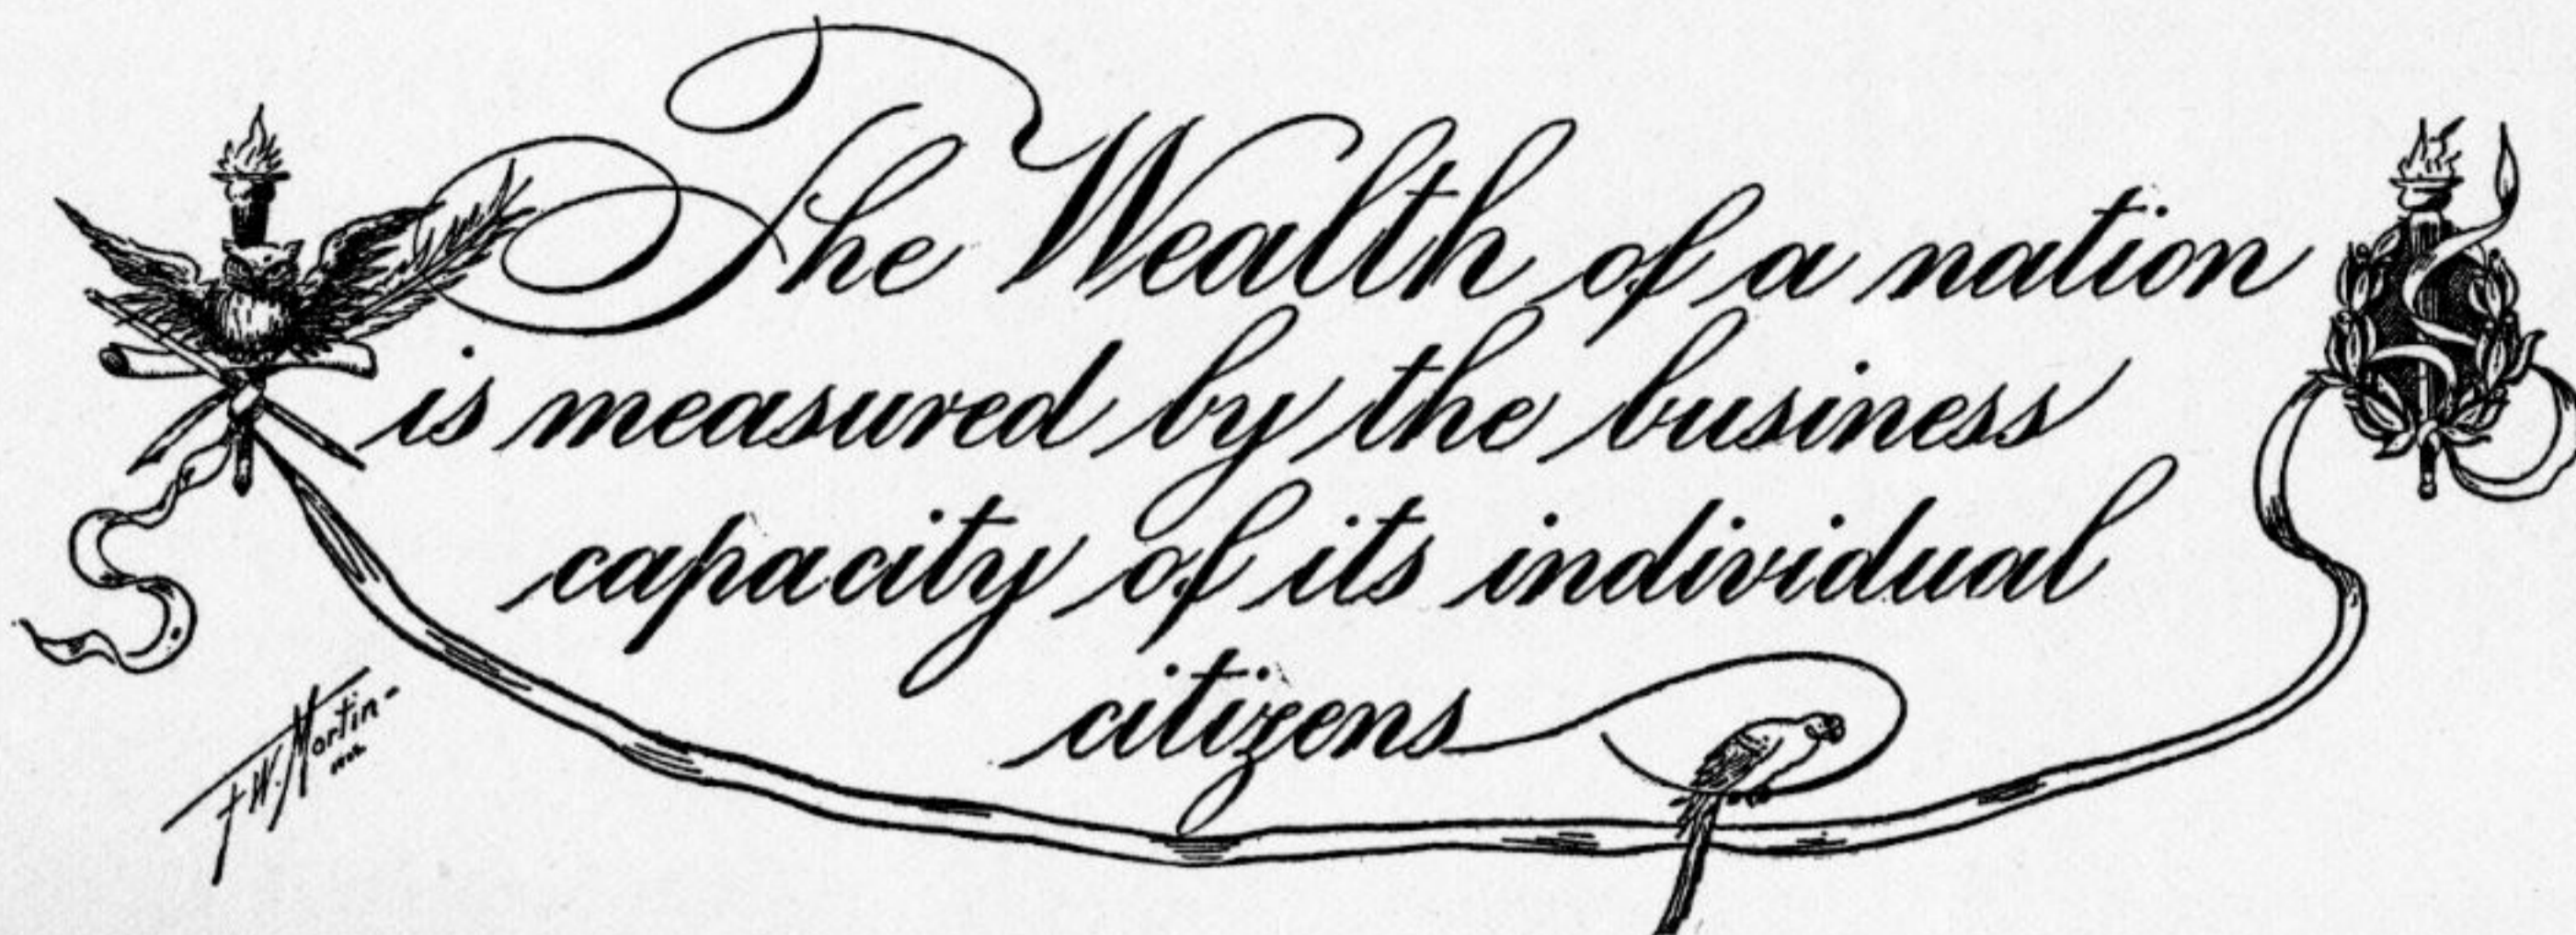 The Wealth of a nation
is measured by the business
capacity of its individual
citizens
F.W. Martin